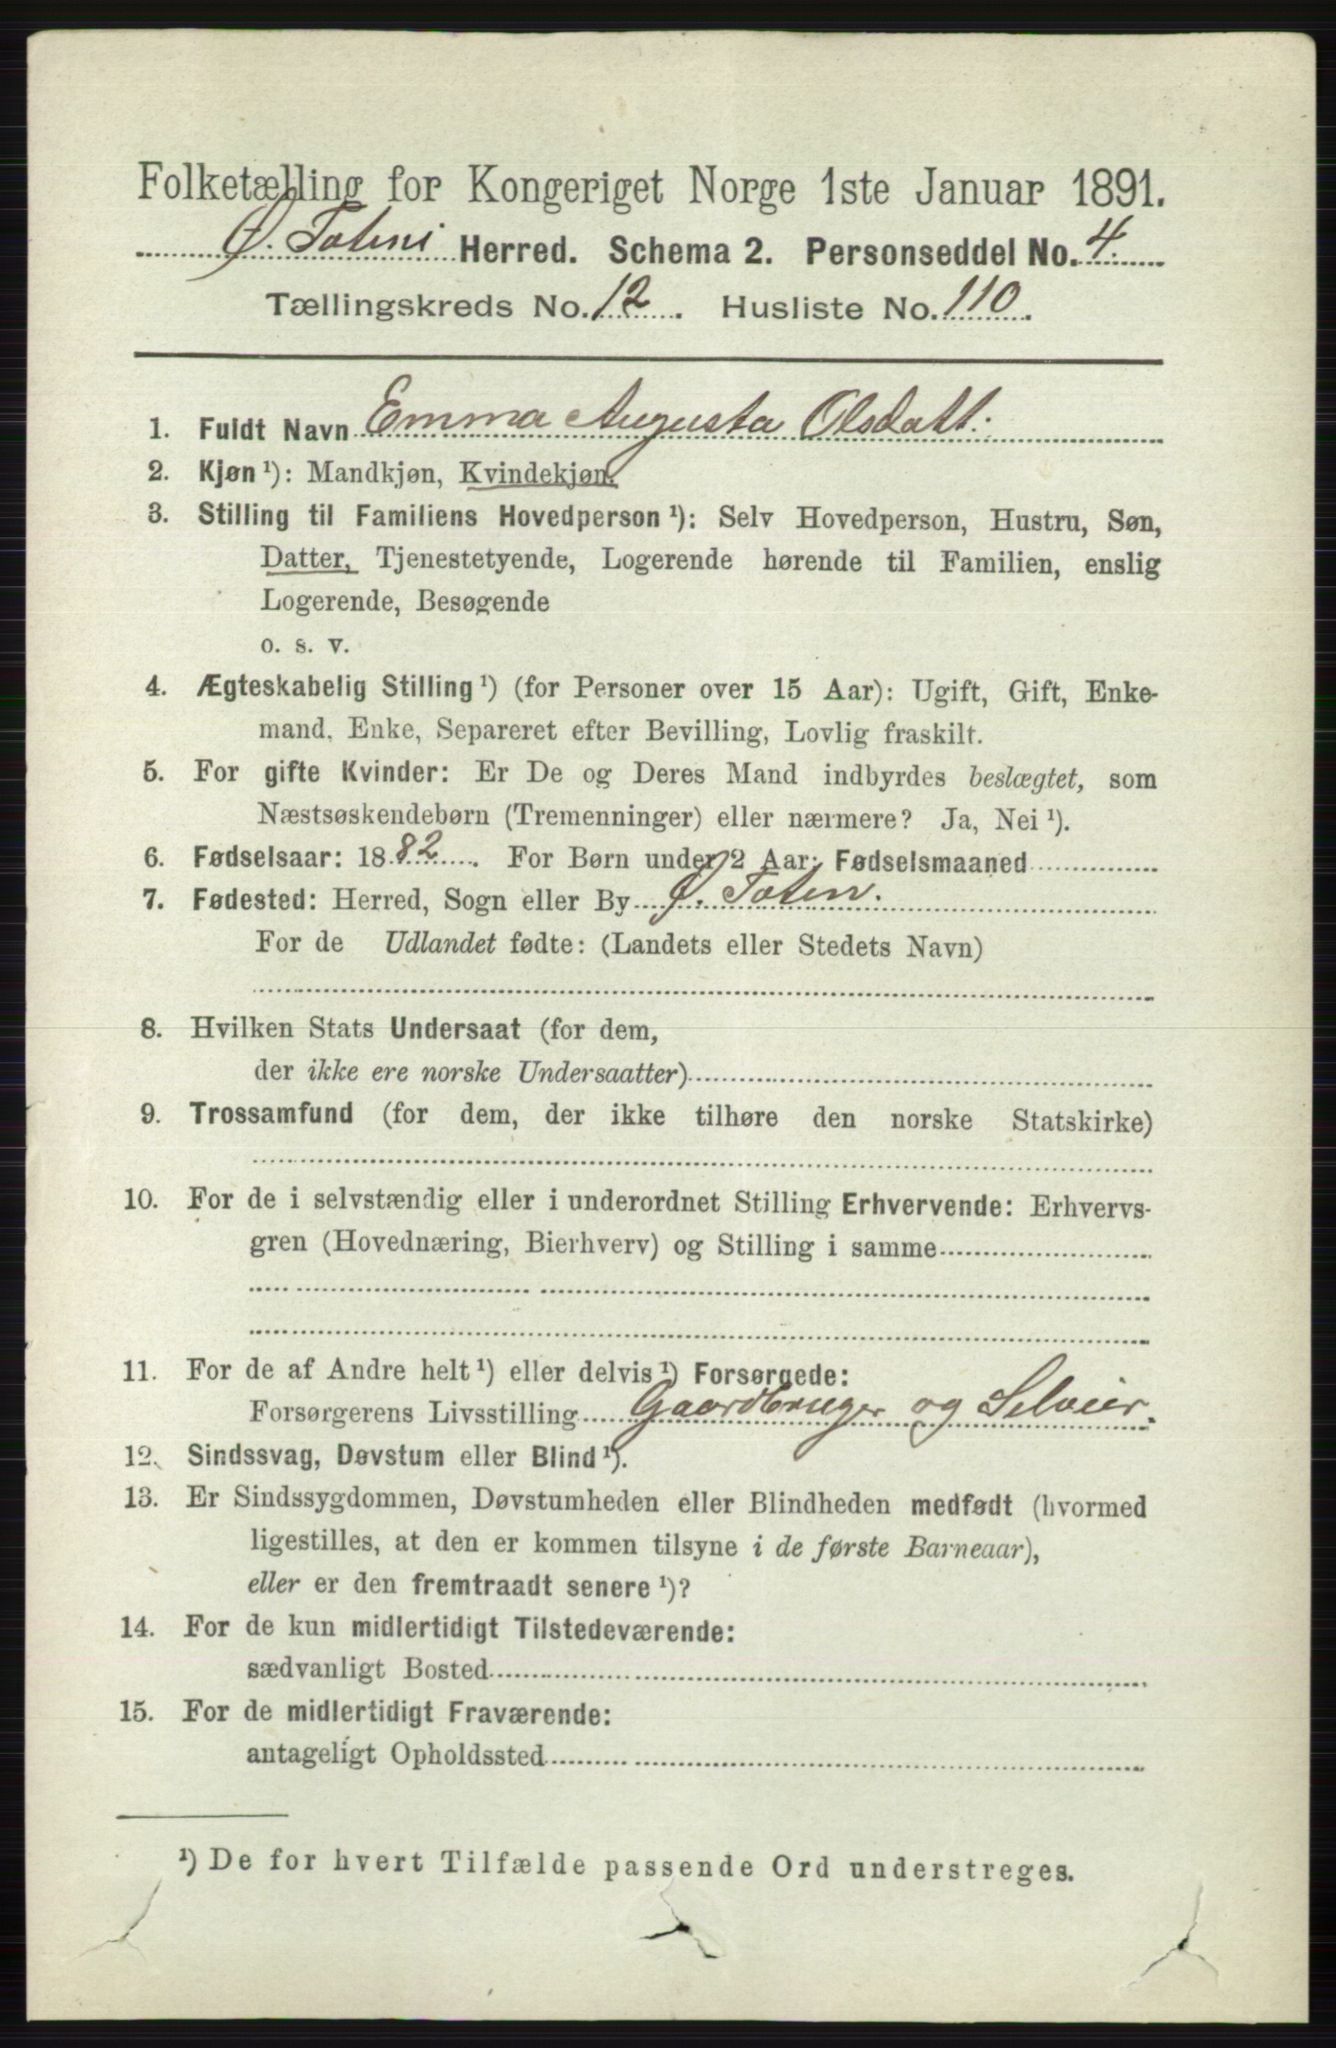 Folketælling for Kongeriget Norge 1ste Januar 1891.
Ø. Totens Herred. Schema 2. Personseddel No. 4.
Tællingskreds No. 12. Husliste No. 110.
1. Fuldt Navn Emma Augusta Olsdatt.
2. Kjøn ¹): Mandkjøn, Kvindekjøn.
3. Stilling til Familiens Hovedperson ¹): Selv Hovedperson, Hustru, Søn,
Datter, Tjenestetyende, Logerende hørende til Familien, enslig
Logerende, Besøgende
o. s. v.
4. Ægteskabelig Stilling ¹) (for Personer over 15 Aar): Ugift, Gift, Enke-
mand, Enke, Separeret efter Bevilling, Lovlig fraskilt.
5. For gifte Kvinder: Er De og Deres Mand indbyrdes beslægtet, som
Næstsøskendebørn (Tremenninger) eller nærmere? Ja, Nei ¹).
6. Fødselsaar: 1882. For Børn under 2 Aar: Fødselsmaaned
7. Fødested: Herred, Sogn eller By Ø. Toten.
For de Udlandet fødte: (Landets eller Stedets Navn)
8. Hvilken Stats Undersaat (for dem,
der ikke ere norske Undersaatter)
9. Trossamfund (for dem, der ikke tilhøre den norske Statskirke)
10. For de i selvstændig eller i underordnet Stilling Erhvervende: Erhvervs-
gren (Hovednæring, Bierhverv) og Stilling i samme
11. For de af Andre helt ¹) eller delvis ¹) Forsørgede:
Forsørgerens Livsstilling Gaardbruger og Selveier.
12. Sindssvag, Døvstum eller Blind ¹).
13. Er Sindssygdommen, Døvstumheden eller Blindheden medfødt (hvormed
ligestilles, at den er kommen tilsyne i de første Barneaar),
eller er den fremtraadt senere ¹)?
14. For de kun midlertidigt Tilstedeværende:
sædvanligt Bosted
15. For de midlertidigt Fraværende:
antageligt Opholdssted
¹) De for hvert Tilfælde passende Ord understreges.